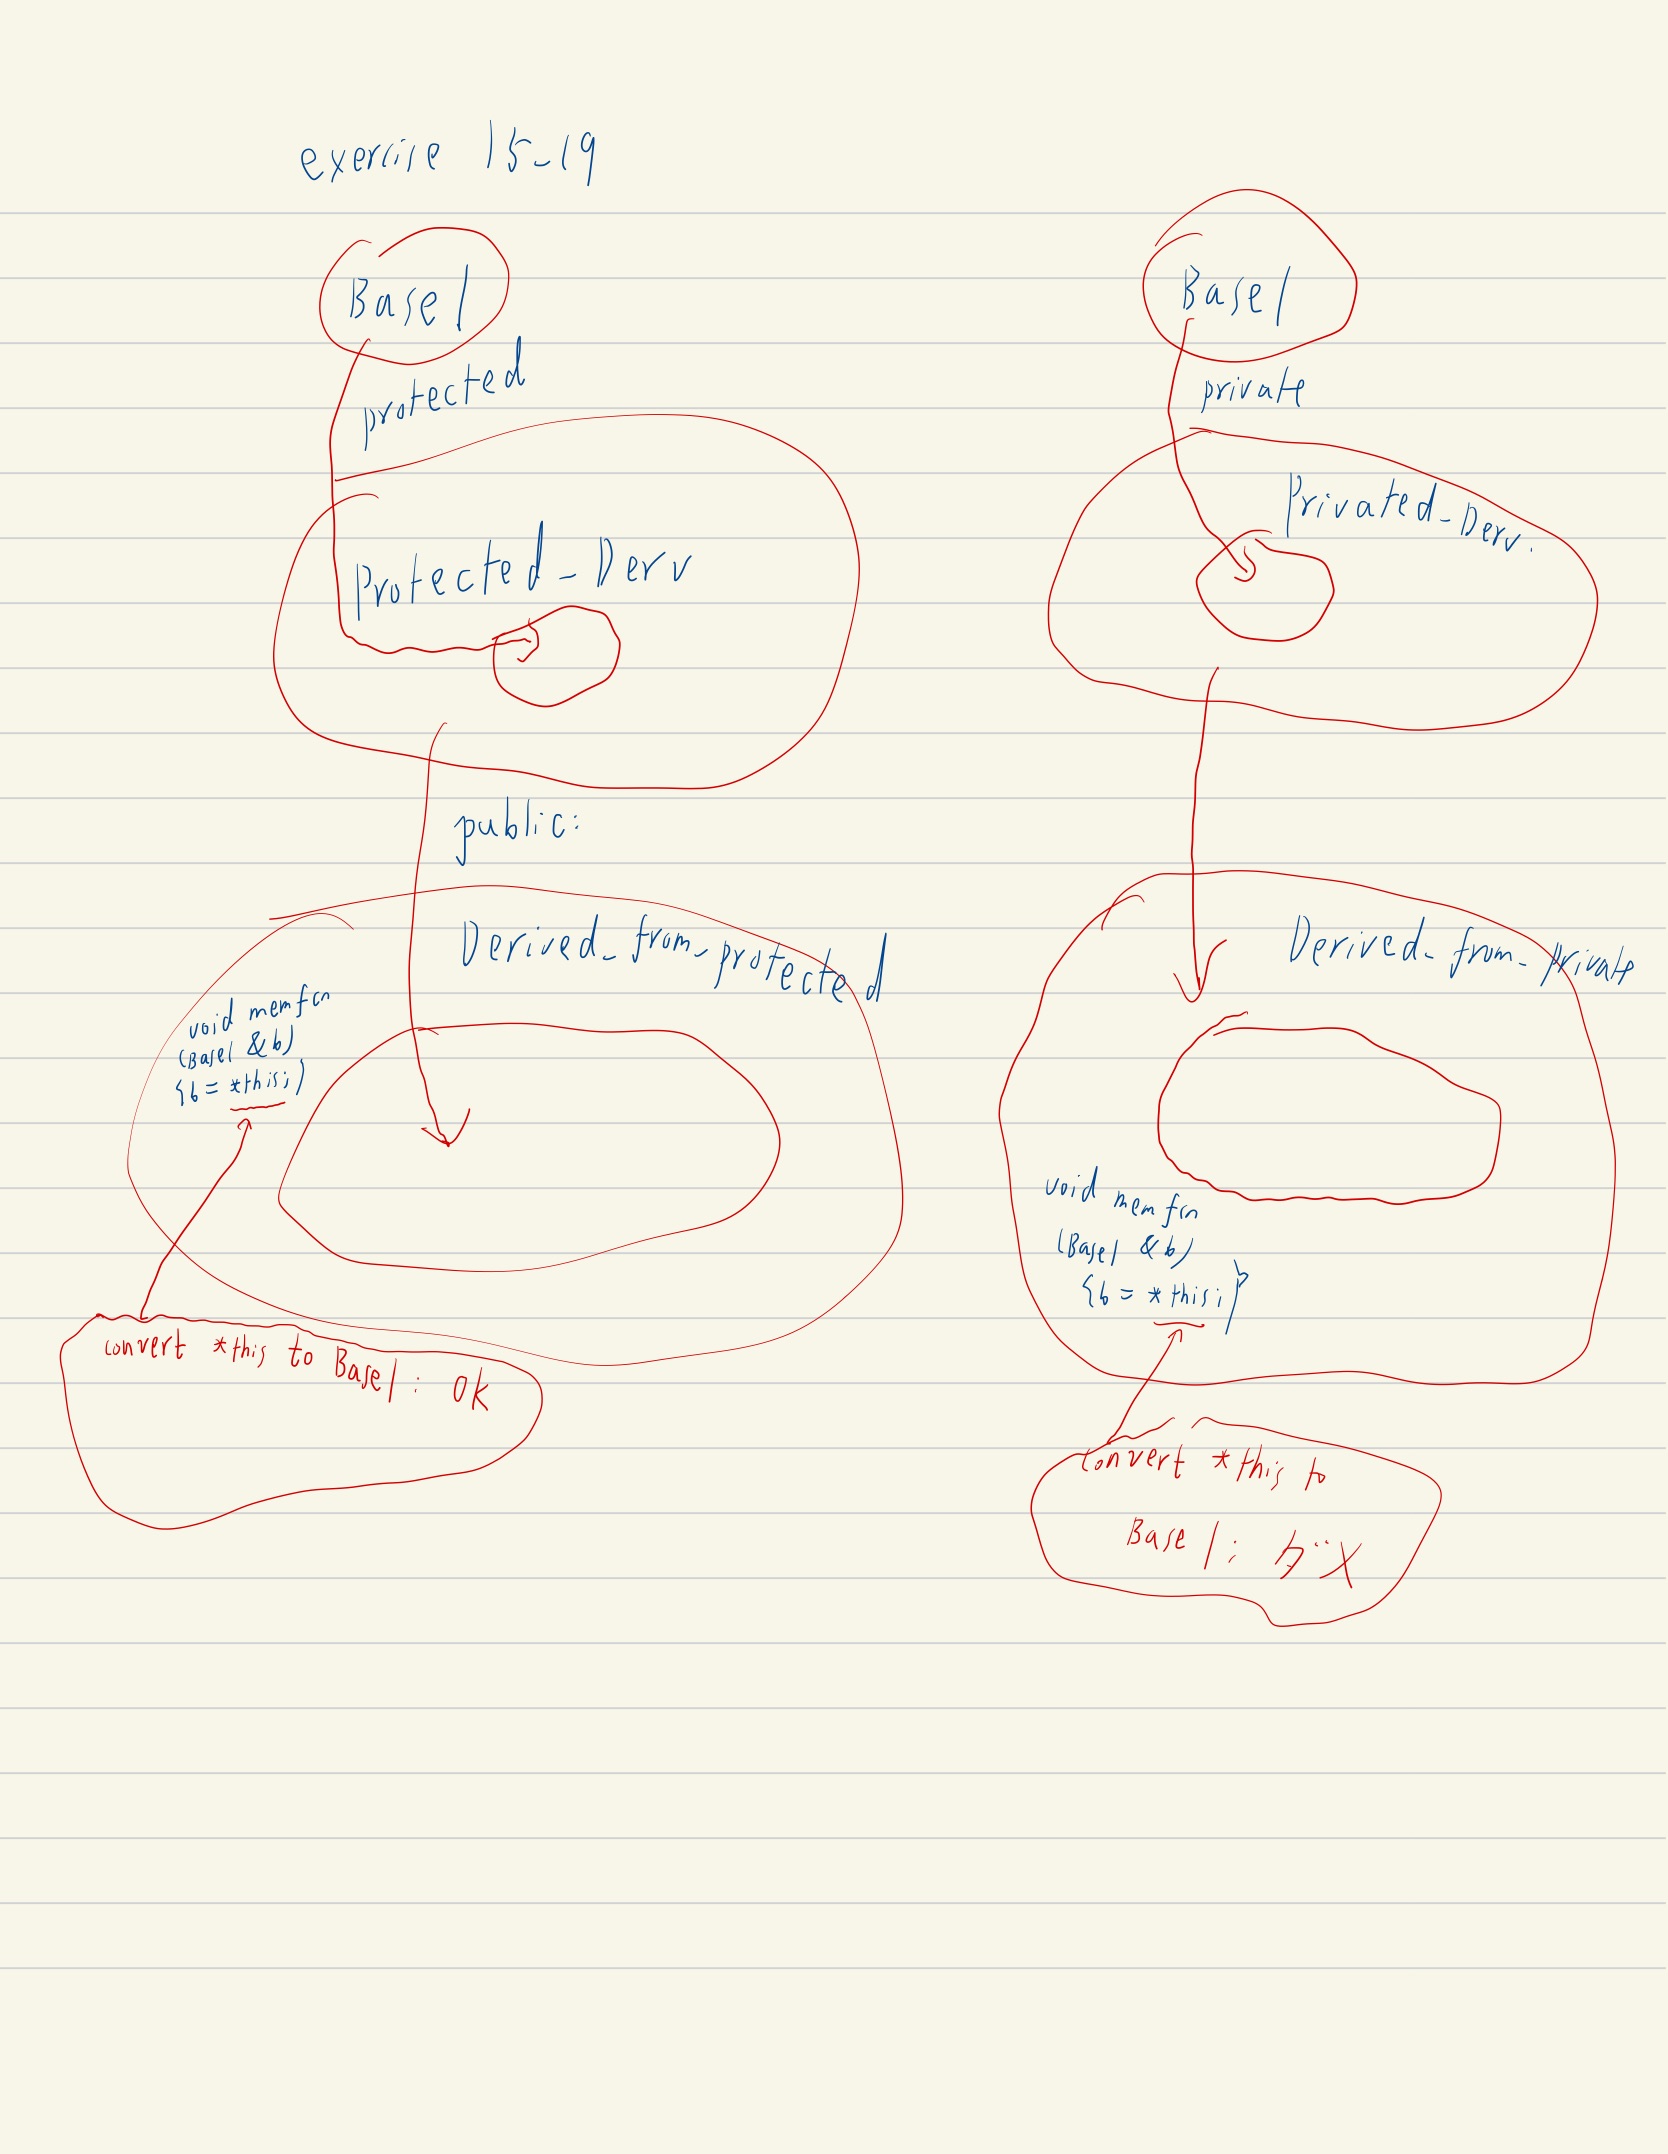 exercise 15-19
Base1
protected
Protected_Derv
public:
Derived_from_protected
void memfcn
(Base1 &b)
{b = *this;}
convert *this to Base1: OK
Base1
private
Privated_Derv.
Derived_from_private
void memfcn
(Base1 &b)
{b = *this;}
convert *this to
Base1: